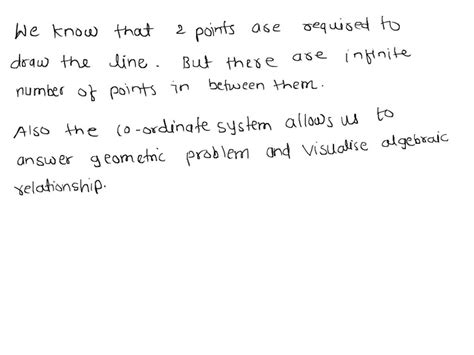 We know that 2 points are required to
draw the line. But there are infinite
number of points in between them.
Also the co-ordinate system allows us to
answer geometric problem and visualise algebraic
relationship.